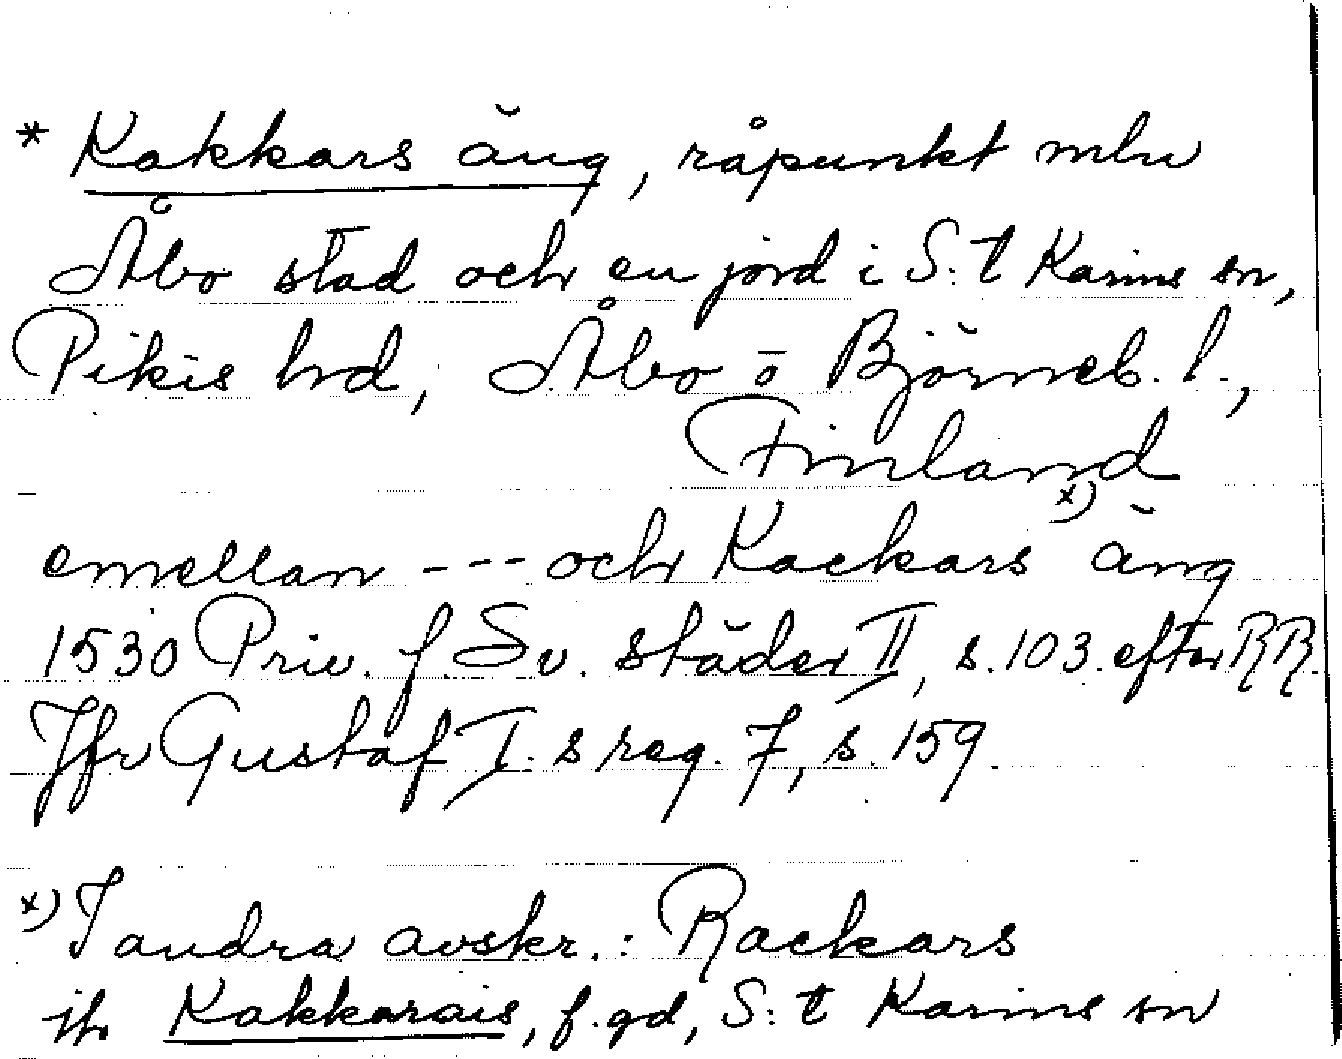 * Kakkars äng, råpunkt mlw
Åbo stad och en jord i S:t Karins sn,
Pikis hd, Åbo o Björneb. l.,
Finland
emellan --- och Kackars x) äng
1530 Priv. f. Sv. städer II, s. 103. efter RR.
Jfr Gustaf I. s reg. 7, s. 159.
x) I andra avskr.: Rackars
jfr Kakkarais, f. gd, S:t Karins sn